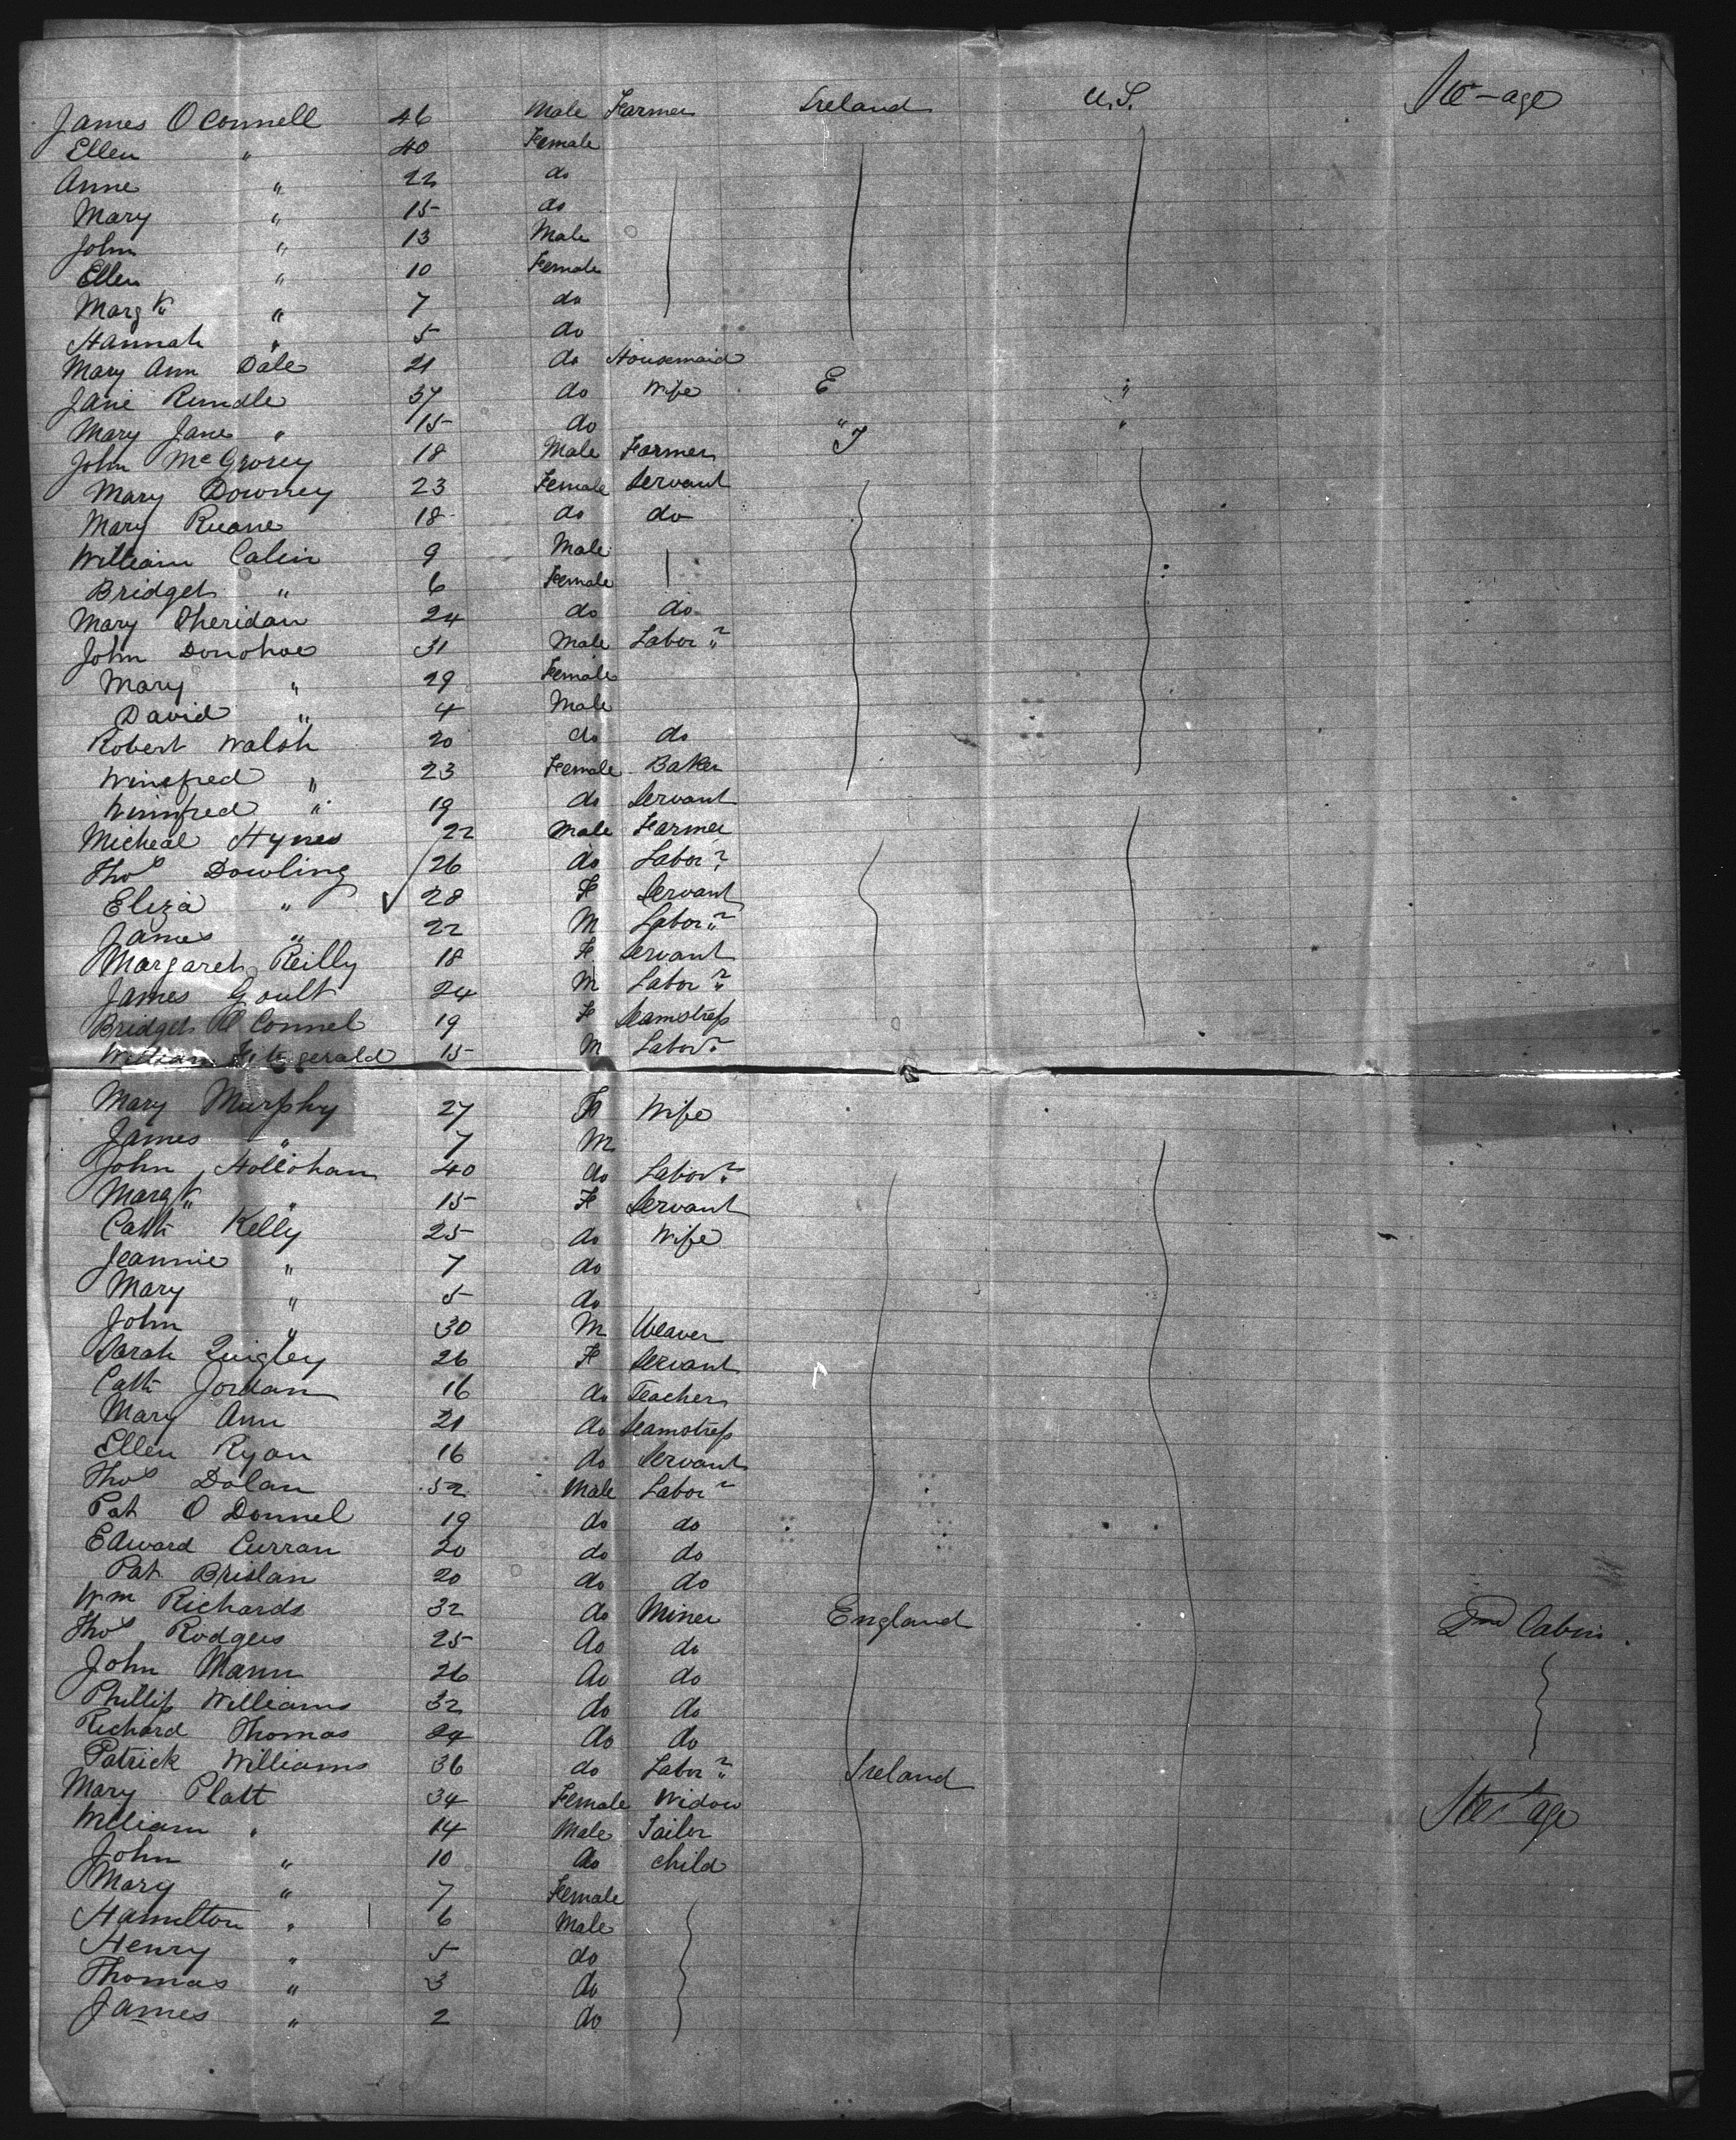 James OConnell 46 Male Farmer Ireland U.S. Ste-age
Ellen " 40 Female
Anne " 22 do
Mary " 15 do
John " 13 Male
Ellen " 10 Female
Margt " 7 do
Hannah " 5 do
Mary Ann Dale 21 do Housemaid
Jane Rundle 37 do Wife E "
Mary Jane " 15 do " "
John McGrorey 18 Male Farmer I
Mary Downey 23 Female Servant
Mary Ruane 18 do do
William Calin 9 Male
Bridget " 6 Female
Mary Sheridan 24 do do
John Donohoe 31 Male Labor"r
Mary " 29 Female
David " 4 Male
Robert Walsh 20 do do
Winefred " 23 Female Baker
Winnfred " 19 do Servant
Micheal Hynes 22 Male Farmer
Thos Dowling 26 do Labor"r
Eliza " 28 F Servant
James " 22 M Labor"r
Margaret Reilly 18 F Servant
James Goult 24 M Labor"r
Bridget O Connel 19 F Seamstress
William Fitzgerald 15 M Labor"r
Mary Murphy 27 F Wife
James " 7 M
John Hollohan 40 do Labor"r
Margt " 15 F Servant
Cath Kelly 25 do Wife
Jeannie " 7 do
Mary " 5 do
John " 30 M Weaver
Sarah Quigley 26 F Servant
Cath Jordan 16 do Teacher
Mary Ann 21 do Seamstress
Ellen Ryan 16 do Servant
Thos Dolan 52 Male Labor"r
Pat O Donnel 19 do do
Edward Curran 20 do do
Pat Brislan 20 do do
Wm Richards 32 do Miner England 2nd Cabin
Thos Rodgers 25 do do
John Mann 26 do do
Phillip Williams 32 do do
Richard Thomas 24 do do
Patrick Williams 36 do Labor"r Ireland
Mary Platt 34 Female Widow Ste'age
William " 14 Male Tailor
John " 10 do child
Mary " 7 Female
Hamilton " 6 Male
Henry " 5 do
Thomas " 3 do
James " 2 do